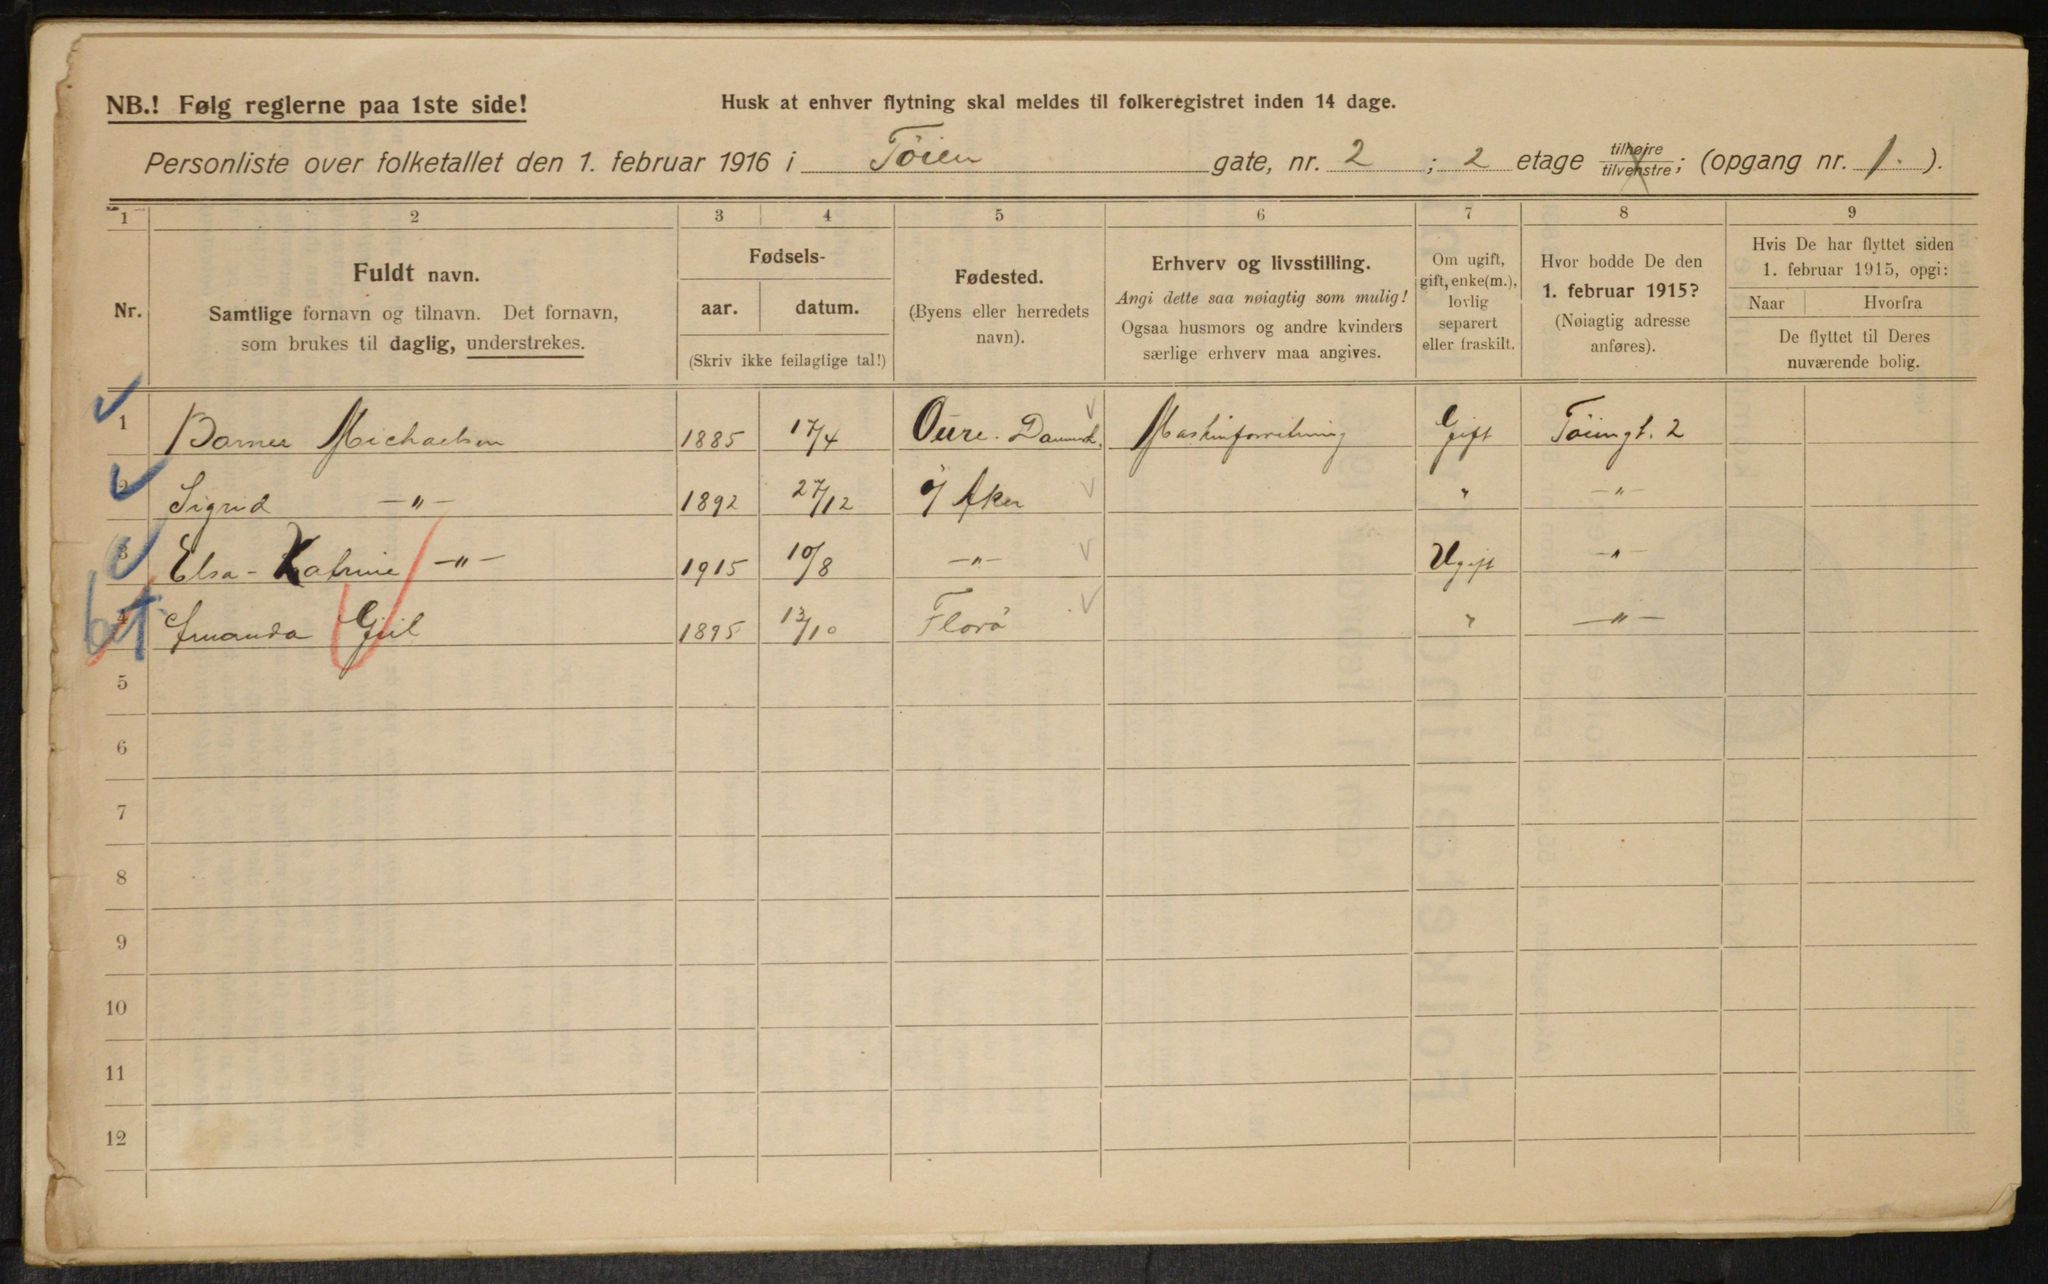 NB.! Følg reglerne paa 1ste side!
Husk at enhver flytning skal meldes til folkeregistret inden 14 dage.
Personliste over folketallet den 1. februar 1916 i Töien gate, nr. 2 ; 2 etage tilhøire tilvenstre; (opgang nr. 1. ).
1 2 3 4 5 6 7 8 9
Nr.
Fuldt navn.
Samtlige fornavn og tilnavn. Det fornavn,
som brukes til daglig, understrekes.
Fødsels-
aar. datum.
(Skriv ikke feilagtige tal!)
Fødested.
(Byens eller herredets
navn).
Erhverv og livsstilling.
Angi dette saa nøiagtig som mulig!
Ogsaa husmors og andre kvinders
særlige erhverv maa angives.
Om ugift,
gift, enke(m.),
lovlig
separert
eller fraskilt.
Hvor bodde De den
1. februar 1915?
(Nøiagtig adresse
anføres).
Hvis De har flyttet siden
1. februar 1915, opgi:
Naar Hvorfra
De flyttet til Deres
nuværende bolig.
1 Michaelsen 1885 17/4 Oure. Danmark. Maskinforretning Gift Töiengt. 2
2 Sigrid —"— 1892 27/12 Ø Aker " —"—
3 Elsa-Katrine —"— 1915 10/8 —"— Ugift —"—
4 Amanda Giil 1895 13/10 Florö " —"—
5
6
7
8
9
10
11
12